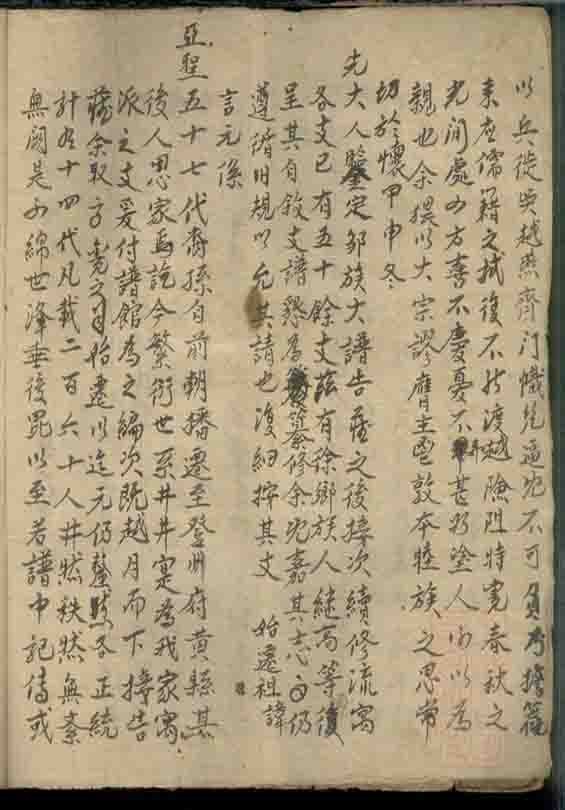 以兵徒吳越燕齊行幟兇逼兇不可負考擔簦
来在儒籍之拭復不於渡越險阻特寬春秋之
光間處四方喜不慶憂不弔甚於塗人何以為
親也余猥以大宗謬膺主鬯敦本睦族之思常
切於懷甲申冬
先大人鑒定鄒族大譜告蕆之後接次續修流寓
各支已有五十餘支茲有徐鄉族人繼高等復
呈其自敘支譜懇為纂修余兇嘉其志而仍
遵循旧規以允其請也復細按其支 始遷祖諱
言元係
亞聖五十七代裔孫自前朝播遷至登州府黄縣其
後人思家焉訖今繁衍世系井井寔為我家寓
派之支爰付譜館為之編次既越月而下接告
蕆余取方覧之自始遷以迄元仍釐然各正統
計為十四代凡載二百六十人井然秩然無紊
無闕是可綿世澤垂後昆以至若譜中記傳或